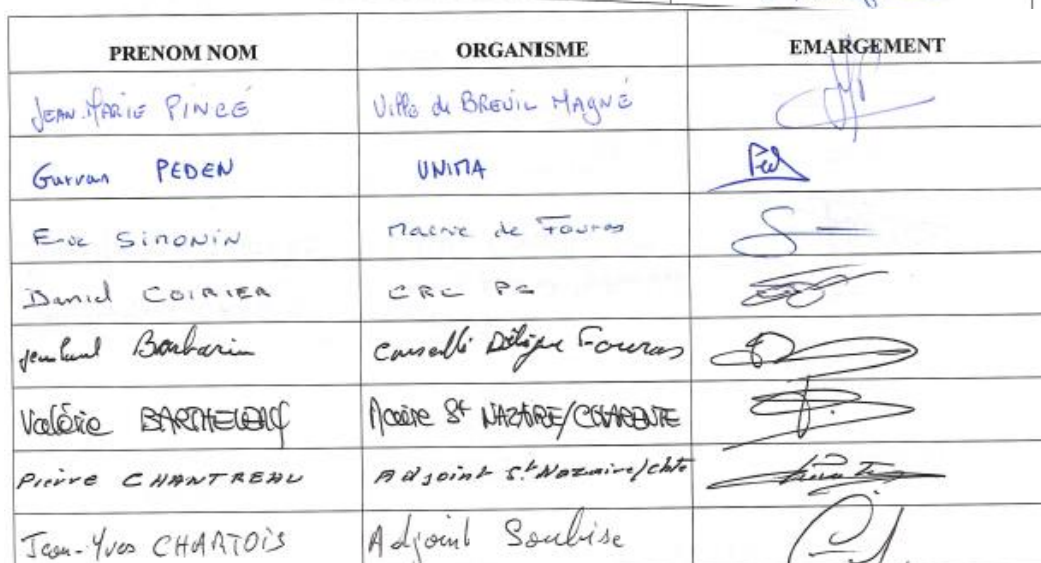 PRENOM NOM ORGANISME EMARGEMENT
JEAN-MARIE PINCÉ Ville de BREUIL MAGNÉ
Gurvan PEDEN UNIMA Ped
Eric SIMONIN Mairie de Fouras
Daniel COIRIER CRC PC
Jean Paul Barbarin Conseiller Délégué Fouras
Valérie BARTHELEMY Maire St NAZAIRE/CHARENTE
Pierre CHANTREAU Adjoint St Nazaire/chte
Jean-Yves CHARTOIS Adjoint Soubise